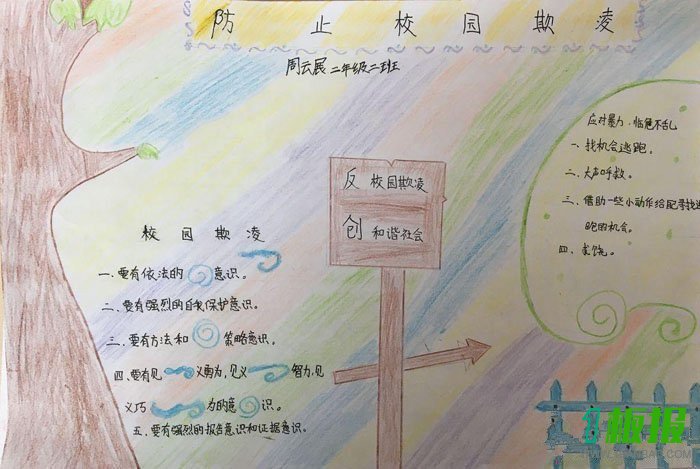 防止校园欺凌
周云展 二年级二班
应对暴力,临危不乱
一、找机会逃跑。
二、大声呼救。
三、借助一些小动作给自己寻找逃
跑的机会。
四、求饶。
反校园欺凌
创和谐社会
校园欺凌
一、要有依法的意识。
二、要有强烈的自我保护意识。
三、要有方法和策略意识。
四、要有见义勇为,见义智为,见
义巧为的意识。
五、要有强烈的报告意识和证据意识。
板报